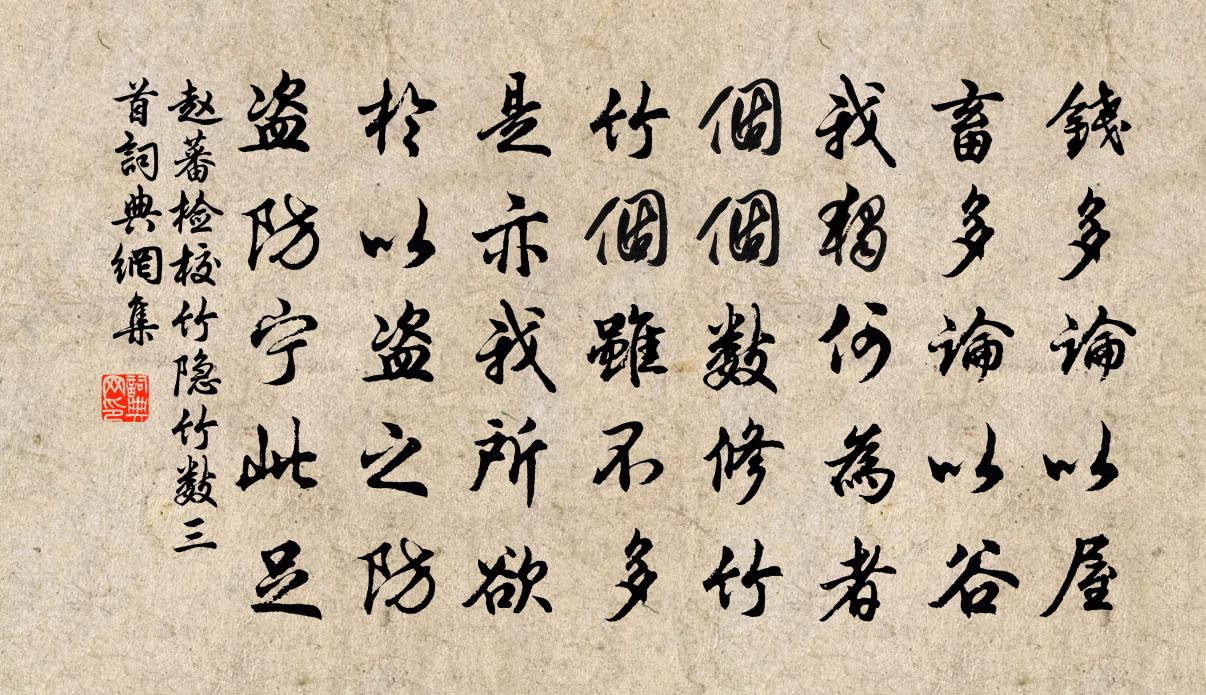 錢多論以屋
畜多論以谷
我獨何為者
個個數修竹
竹個個雖不多
是亦我所欲
於以盗之防
盗防宁此足
赵蕃检校竹隐竹數三
首詞典網集
詞典
网印